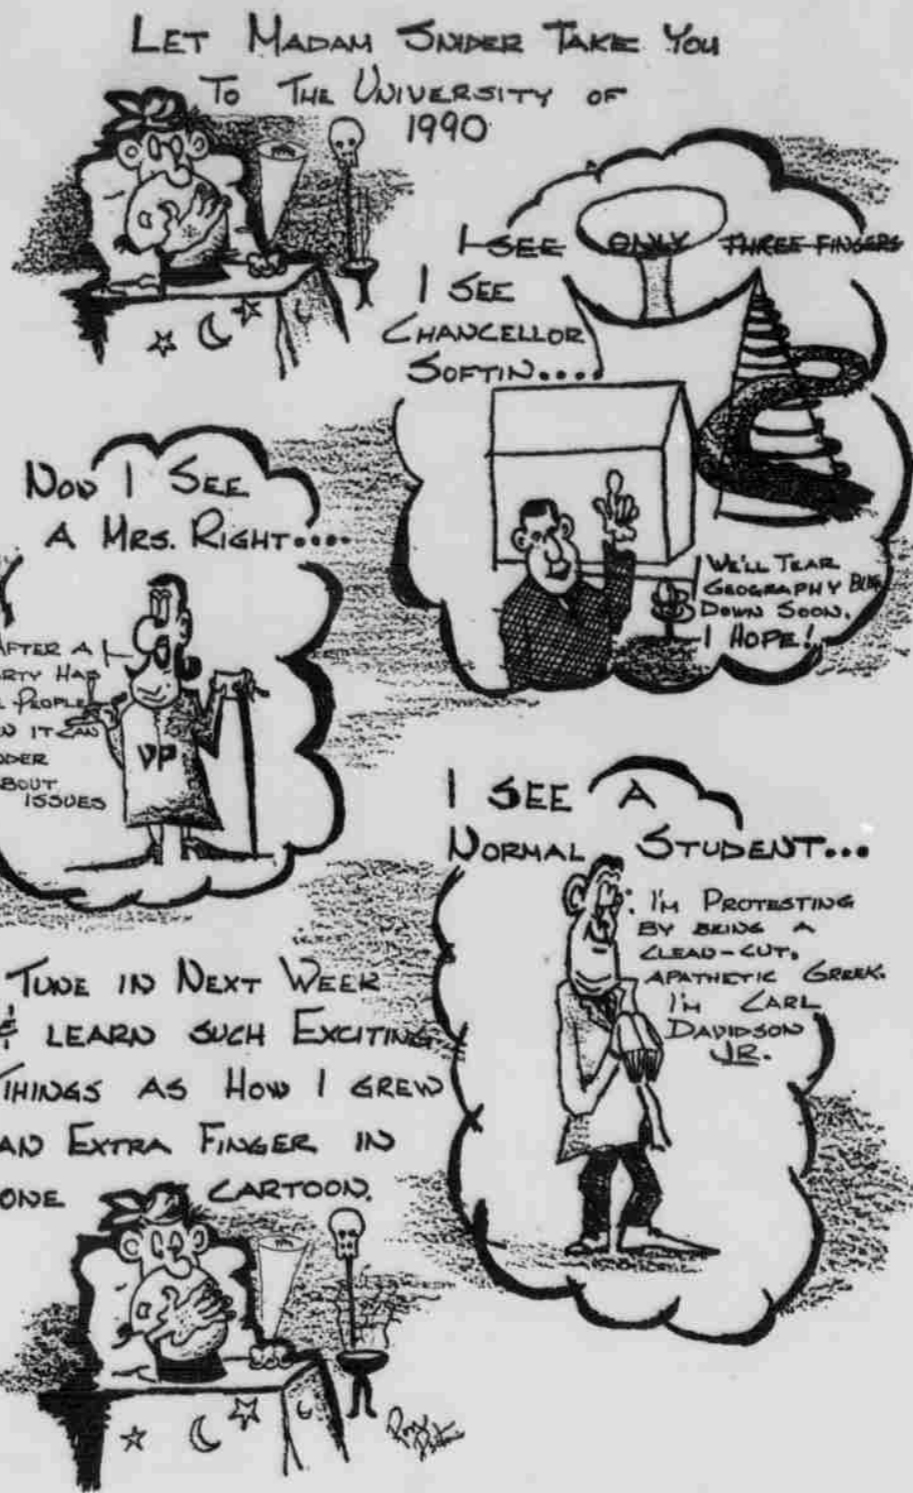 LET MADAM SNIDER TAKE YOU
TO THE UNIVERSITY OF
1990
I SEE ONLY THREE FINGERS
I SEE
CHANCELLOR
SOFTIN....
WE'LL TEAR
GEOGRAPHY BLDG
DOWN SOON.
I HOPE!
NOW I SEE
A MRS. RIGHT....
AFTER A
RTY HAD
PEOPLE
IT CAN
DER
BOUT
ISSUES
VP
I SEE A
NORMAL STUDENT...
I'M PROTESTING
BY BEING A
CLEAN-CUT,
APATHETIC GREEK.
I'M CARL
DAVIDSON
JR.
TUNE IN NEXT WEEK
& LEARN SUCH EXCITING
THINGS AS HOW I GREW
AN EXTRA FINGER IN
ONE CARTOON.